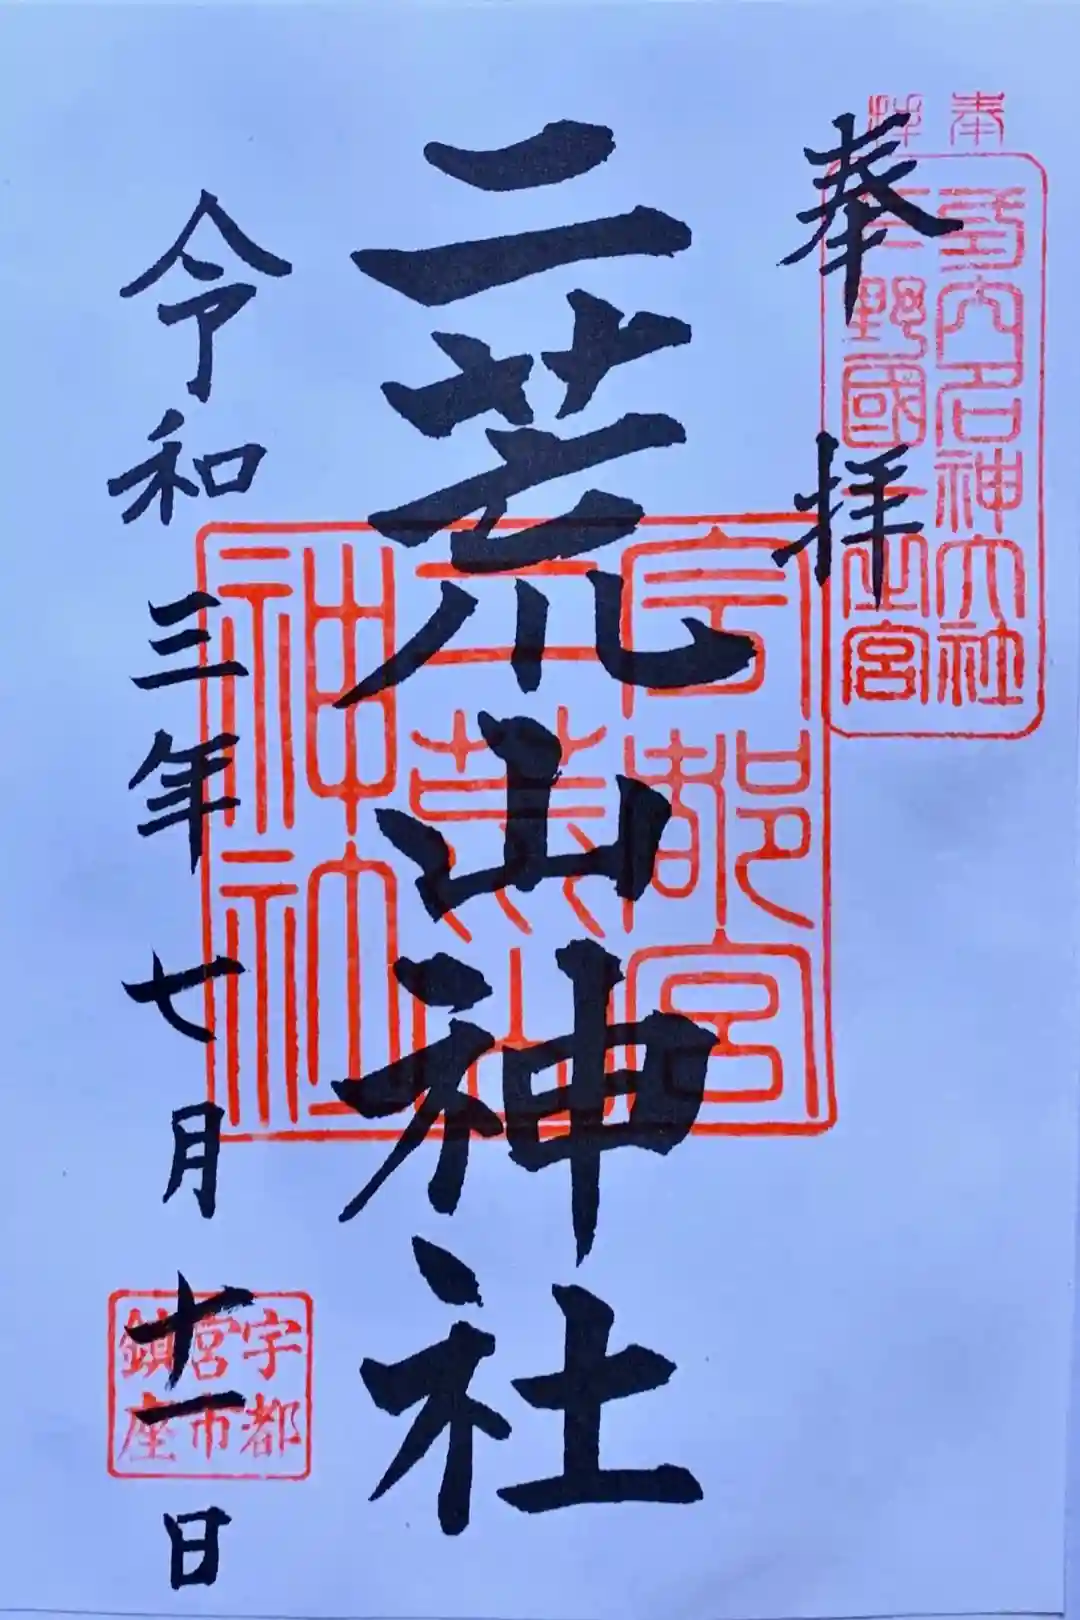 奉拝
奉拝
式内名神大社
下野國一之宮
二荒山神社
宇都宮
二荒山
神社
令和三年七月十一日
宇都
宮市
鎮座